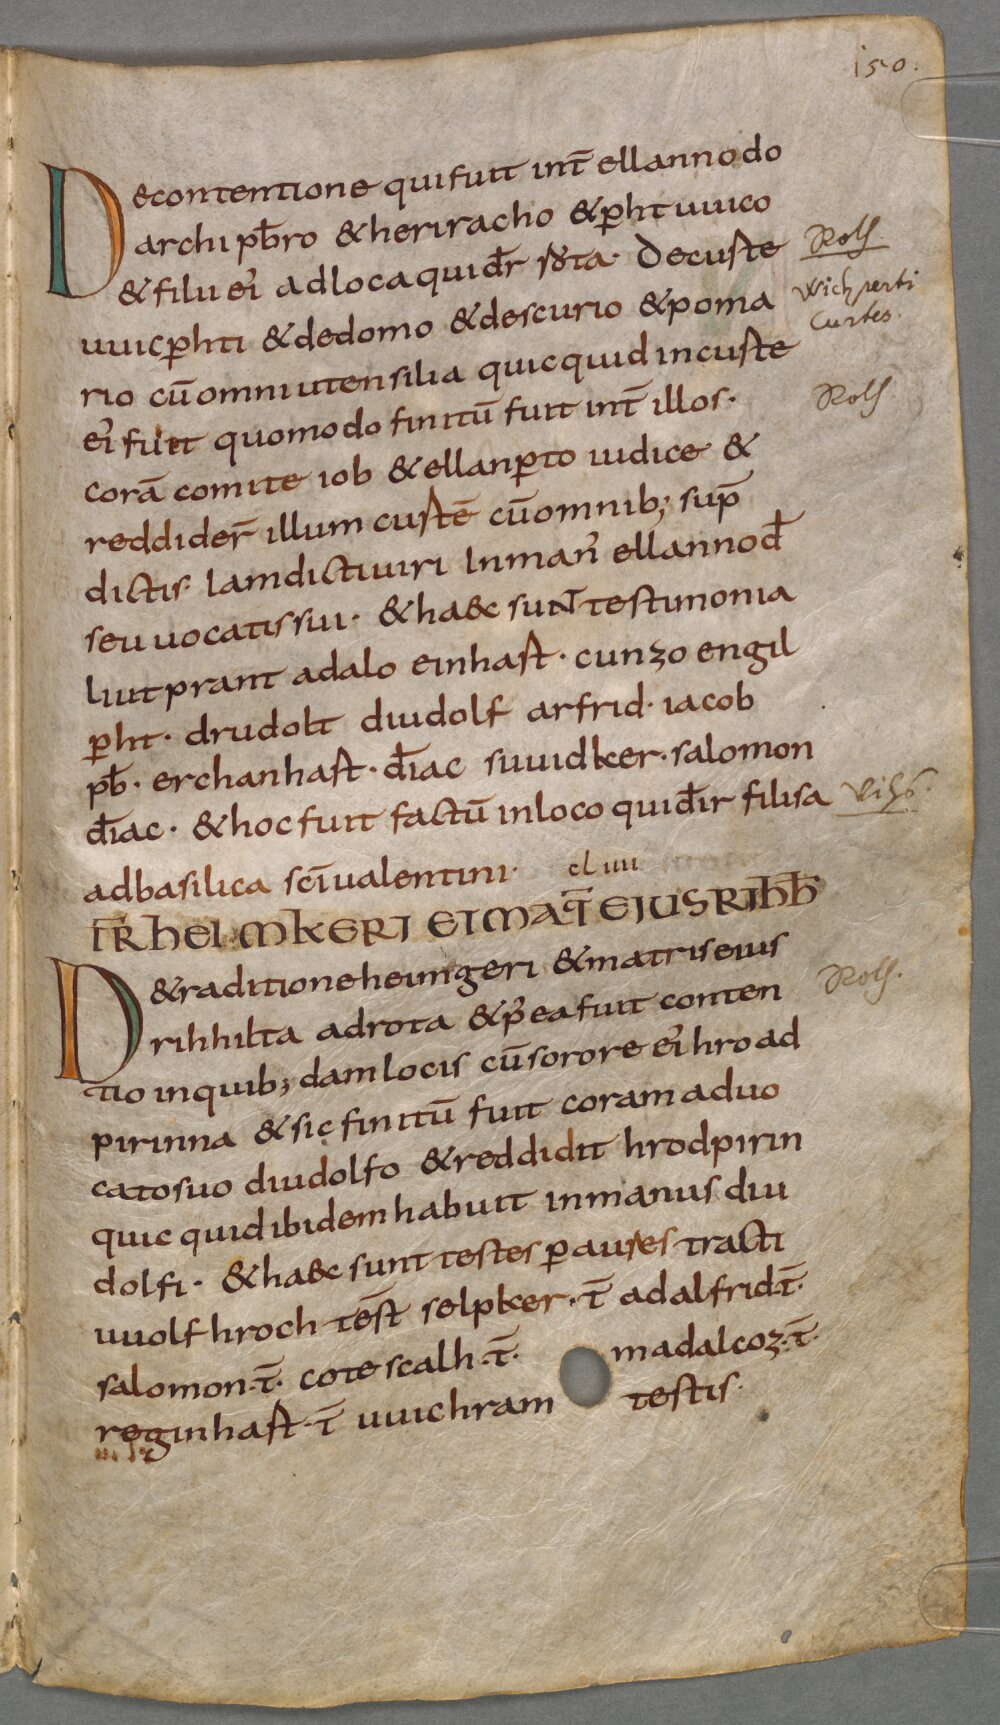 150.
Decontentione quifuit int̄ ellannodo
archi pb̄ro & heriracho & p̄ht uuico
& filii ei᾽ adloca quid̄r rota· Decuste
uuicp̄hti & dedomo & descurio & poma
rio cū omni utensilia quicquid incuste
ei᾽ fuit quomodo finitū fuit int̄ illos·
corā comite iob & ellanp̄to iudice &
reddider̄ illum custē cū omnib; sup̄
dictis· Iamdicti uiri Inman᾽ ellannod̄
seu uocatis sui· & ha&c suNt testimonia
liutprant adalo einhast· cunzo engil
p̄ht· drudolt diudolf arfrid· iacob
pb̄· erchanhast· d̄iac suuidker· salomon
d̄iac· & hoc fuit factū inloco quid̄ir filisa
adbasilica sc̄i ualentini· cl iiii
T̄R hEImKERI EI MAT̄ EIUS RIhh̄
D&raditione heimgeri & matris eius
rihhilta adrota & p᾽ ea fuit conten
tio inquib; dam locis cū sorore ei᾽ hroad
pirinna & sic finitū fuit coram aduo
cato suo diudolfo & reddidit hrodpirin
quic quid ibidem habuit inmanus diu
dolfi· & ha&c sunt testes p̄ aures tracti
uuolf hroch tēst selpker· t̄ adalfrid· t̄·
salomon· t̄· cotescalh· t̄· madalcoz· t̄·
reginhast· t̄ uuichram testis·
Roth
Wichperti
Curtes.
Roth
Vilß.
Roth.